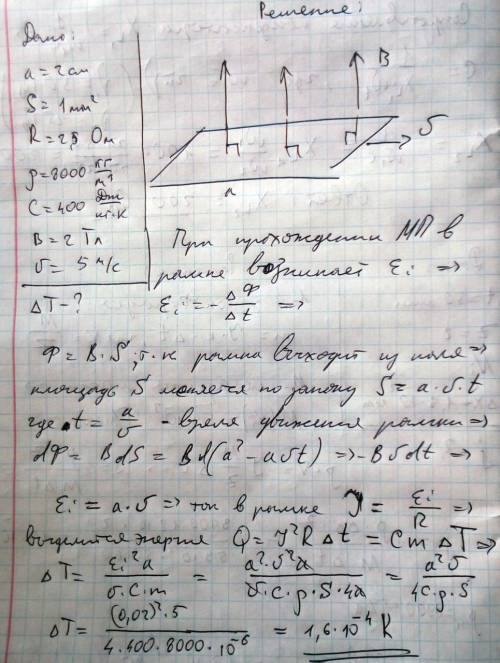 Решение:
Дано:
a = 2 см
S = 1 мм²
R = 2,5 Ом
ρ = 8000 кг/м³
C = 400 Дж/кг·К
B = 2 Тл
υ = 5 м/с
ΔT - ?
B
υ
a
При прохождении МП в
рамке возникает Ei =>
Ei = - ΔФ/Δt =>
Ф = B · S; т.к рамка выходит из поля =>
площадь S меняется по закону S = a · υ · t
где t = a/υ - время движения рамки =>
dФ = B dS = B d(a² - aυt) => -Bυdt =>
Ei = a · υ => ток в рамке J = Ei/R =>
выделится энергия Q = J²RΔt = Cm ΔT =>
ΔT = Ei²a/υ.c.m = a²·υ²a/υ.c.ρ.S.4a = a²υ/4c.ρ.S
ΔT = (0,02)²·5/4.400.8000·10⁻⁶ = 1,6·10⁻⁴ K